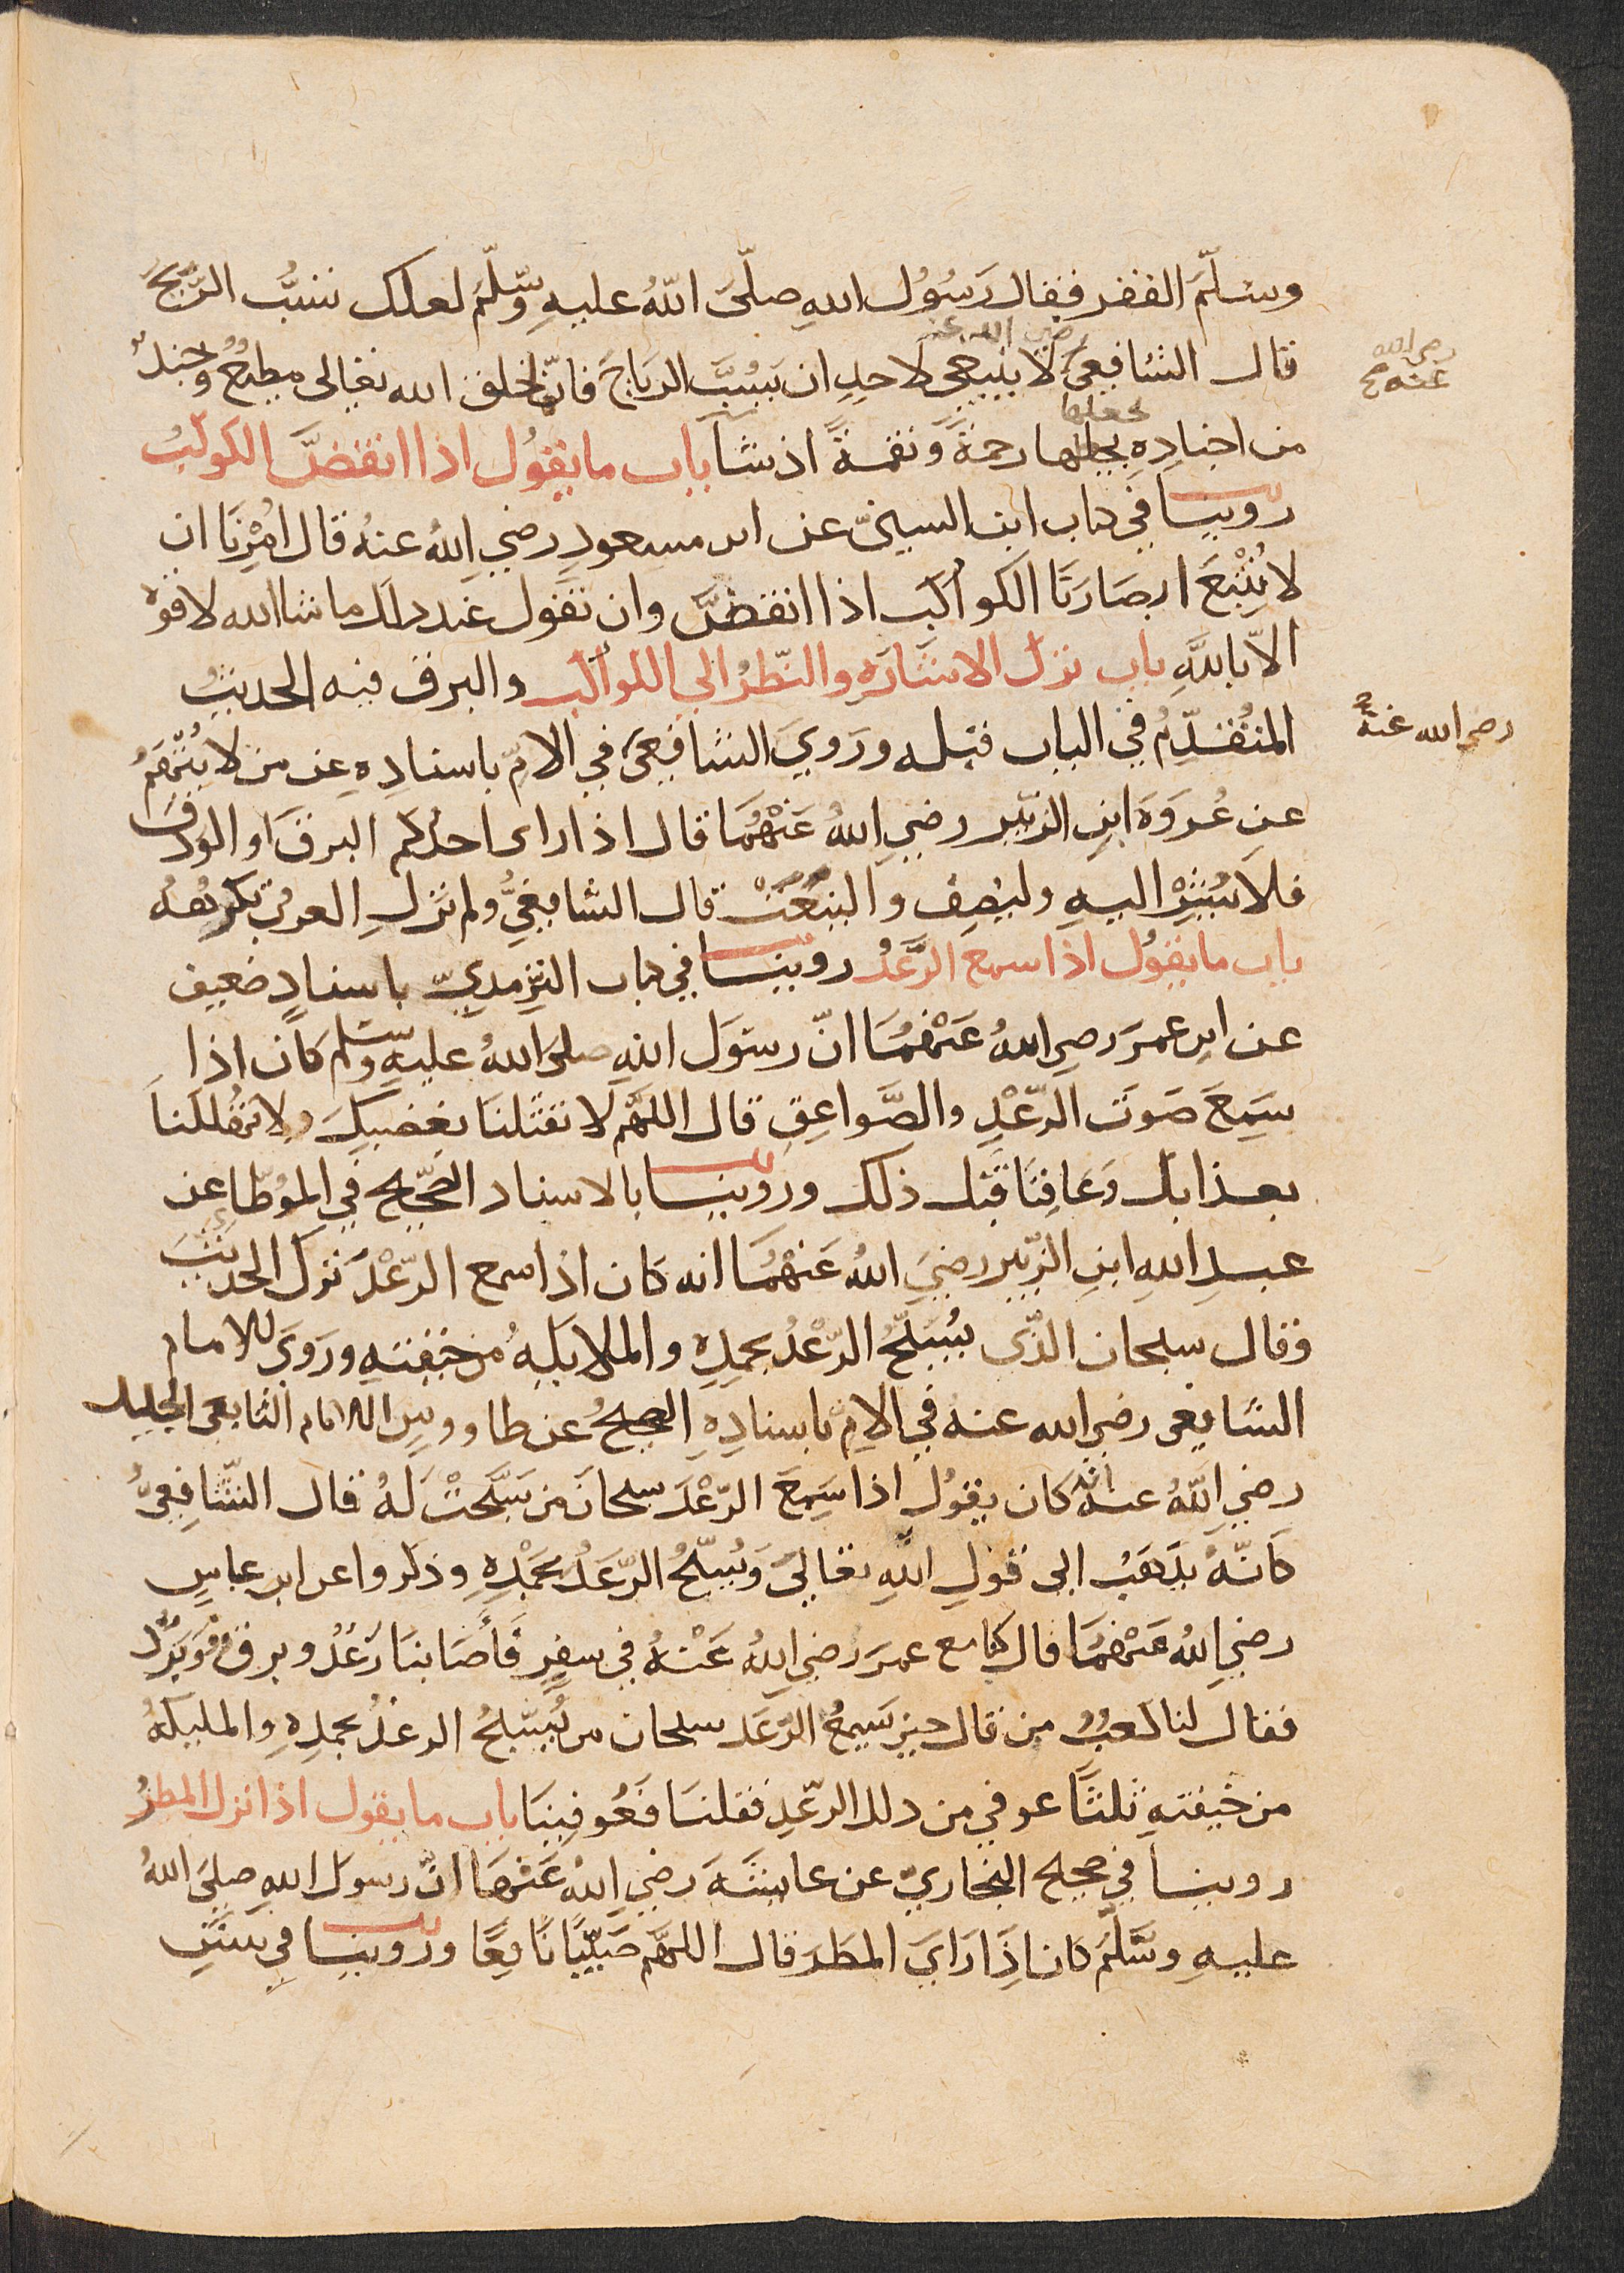 وسلّم الفقر فقال رَسُول اللهِ صلّى اللهُ عليهِ وسّلّم لعلك تسُبُّ الرّيحَ
قال الشافعيّ رضي الله عنه لا ينبغي لاحدٍ ان يَسُبَّ الرياحَ فانّها خلق الله تعالى مطيعٌ وجندٌ
رضي الله عنه صح
من اجنادِهِ يجعلها رحمةً ونقمةً اذ شآ باب ما يقُول اذا انقضَّ الكوكبُ
يجعلها
روينا في كتاب ابن السنيّ عن ابن مسعودٍ رضي اللهُ عنهُ قال اُمِرْنَا ان
لا نُتْبعَ ابصَارَنَا الكواكب اذا انقضّ وان نقول عند ذلك ما شا الله لا قوة
الاّ باللهِ باب ترك الاشَارَه والنّظرُ الى الكواكب والبرق فيه الحديثُ
المتُقدِّمُ في الباب قبله ورَويَ الشافعيّ في الامِّ باسنادِهِ عن من لا يُتّهمُ
رضي الله عنهُ صح
عن عُروَةَ ابنِ الزبير رضي اللهُ عَنْهُمَا قال اذا راى احدُكم البرقَ او الودقَ
فلاَ يُشِرْ اليهِ وليصِف والينعَتْ قال الشافعيُّ ولم تزلِ العربُ تكرهُهُ
باب ما يقُول اذا سمع الرَّعْدُ روينا في كتاب التِّرْمديِّ باسنادٍ ضعيف
عن ابنِ عمرَ رضي اللهُ عَنْهُمَا انّ رسولَ اللهِ صلى اللهُ عليهِ وسّلم كان اذا
سَمِعَ صَوتَ الرّعْدِ والصَّواعِقِ قال اللّهُمّ لا تقتُلنَا بغضبِكَ ولا تهُلكنَا
بعذابك وَعَافِنَا قبْل ذلك وروينا بالاسناد الصّحيح في الموُطّأ عن
عبدِ اللهِ ابنِ الزّبير رضيَ اللهُ عَنْهُمَا انه كان اذا سمع الرّعْدَ ترك الحديثَ
وقال سبحان الذّى يسُبّحُ الرّعْدُ بحمدِهِ والملايكهُ من خيفتهِ ورَوَيَ للامام
الشافعى رضي الله عنهُ في الامِّ باسنادِهِ الصحيحُ عن طاووسٍ الامام التابعى الجليل
رضي اللّهُ عنه انهُ كان يقولُ اذا سَمِعَ الرّعْدَ سبحانَ من سَبَّحَتْ لهُ قال الشّافِعيُّ
كانّهُ يذهَبُ الى قولِ اللهِ تعالى وَيُسبّحُ الرّعَدُ بحَمْدِهِ وذكروا عن ابن عباسٍ
رضي اللهُ عَنْهُمَا قال كنا مع عمرَ رضي اللهُ عَنْهُ في سفرٍ فَأصَابنَا رَعْدٌ وبرقٌ وبَرَدٌ
فقال لنا كعبٌ من قال حين يَسمعُ الرّعَد سبحان من يُسبّحُ الرعدُ بحمدِهِ والمليكهُ
من خيفتهِ ثلثًا عوفي من ذلك الرّعْدِ فقلنَا فَعُوفِينَا باب ما يقول اذا نزل المطرُ
روينا في صحيح البخاريّ عن عايشَة رضي اللهُ عَنْهَا انّ رسولَ اللهِ صلى اللهُ
عليهِ وسَّلَّم كان اذَا رَايَ المطَرَ قال اللهمّ صَيّبًا نَافِعًا وروينا في سننِ